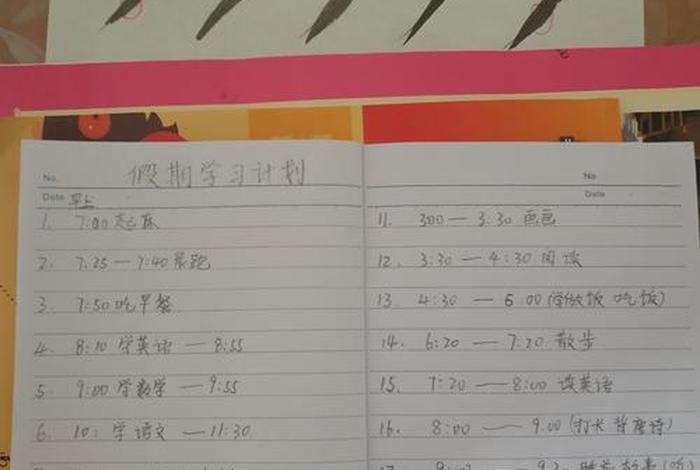 No.
假期学习计划
Date 早上
1. 7:00 起床
2. 7.25 — 7:40 晨跑
3. 7:50 吃早餐
4. 8:10 学英语 — 8:55
5. 9:00 学数学 — 9:55
6. 10: 学语文 — 11:30
No
Date
11. 300 — 3:30 画画
12. 3:30 — 4:30 阅读
13 4:30 — 6.00 (学做饭 吃饭)
14. 6:20 — 7:20 散步
15. 7:20 — 8:00 读英语
16. 8:00 — 9.00 (打卡 背唐诗)
17.